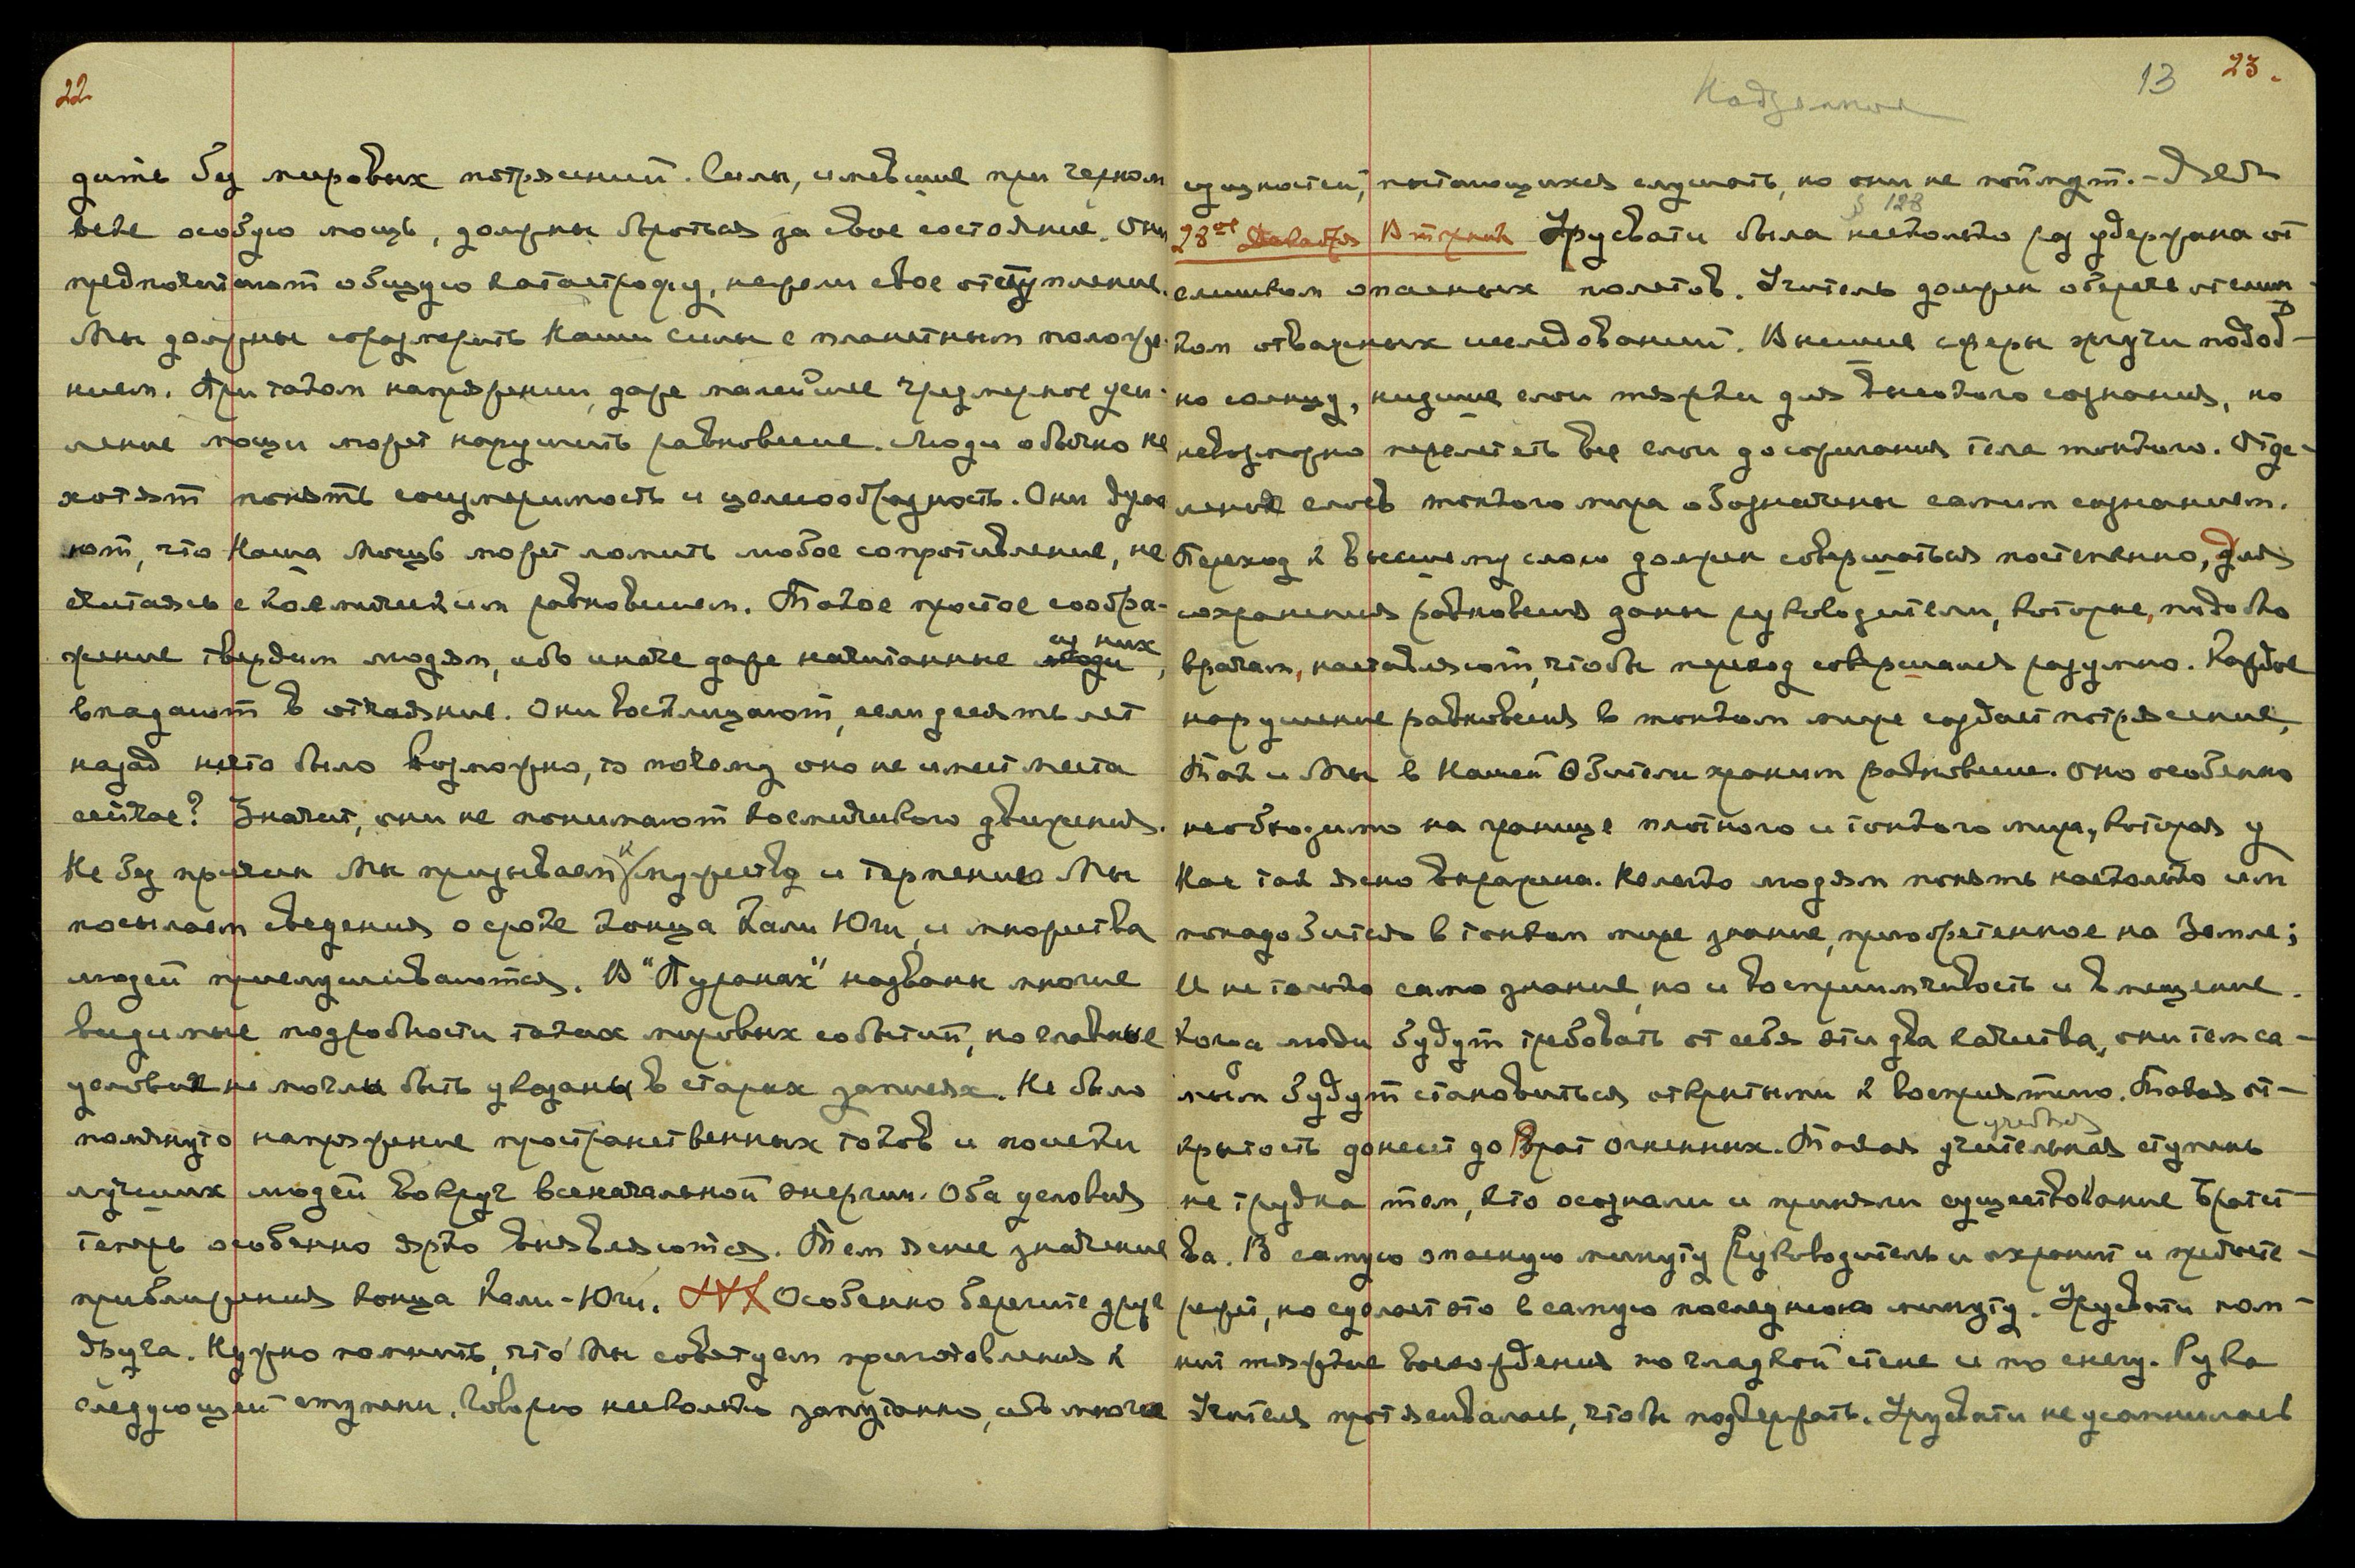 22.
дить без мировых потрясений. Силы, имевшие при черном
веке особую мощь, должны бороться за свое состояние. Они
предпочитают общую катастрофу, нежели свое отступление.
Мы должны соразмерить Наши силы с планетным положе-
нием. При таком напряжении, даже малейшее чрезмерное уси-
ление мощи может нарушить равновесие. Люди обычно не
хотят понять соизмеримость и целесообразность. Они дума
ют, что Наша Мощь может ломить любое сопротивление, не
считаясь с космическим равновесием. Такое простое сообра-
жение твердим людям, ибо иначе даже начитанные из них,
впадают в отчаяние. Они восклицают, если десять лет
назад нечто было возможно, то почему оно не имеет места
сейчас? Значит, они не понимают космического движения.
Не без причин Мы призываем к мужеству и терпению Мы
посылаем сведения о сроке конца Кали Юги, и множества
людей прислушиваются. В "Пуранах" названы многие
видимые подробности таких мировых событий, но главные
условия не могли быть указаны в старых записях. Не было
помянуто напряжение пространственных токов и посылки
лучших людей вокруг всеначальной энергии. Оба условия
теперь особенно ярко выявляются. Тем яснее значение
приближения конца Кали-Юги. Особенно берегите друг
друга. Нужно помнить, что Мы советуем приготовления к
следующей ступени. Говорю несколько запутанно, ибо много
Надземное
13
23.
сущностей, пытающихся слушать, но они не поймут. -
§ 128
28ое Декабря Вторник Урусвати была несколько раз удержана от
слишком опасных полетов. Учитель должен оберечь от слиш
ком отважных исследований. Высшие сферы жгучи подоб-
но солнцу, низшие слои тяжки для высокого сознания, но
невозможно перелететь все слои до сожигания тела тонкого. Отде-
ления слоев тонкого мира обозначены самим сознанием.
Переход к высшему слою должен совершаться постепенно, для
сохранения равновесия даны руководители, которые, подобно
врачам, наставляют, чтобы переход совершался разумно. Каждое
нарушение равновесия в тонком мире создает потрясение,
Так и Мы в Нашей Обители храним равновесие. Оно особенно
необходимо на границе плотного и тонкого мира, которая у
Нас так ясно выражена. Нелегко людям понять насколько им
понадобится в тонком мире знание, приобретенное на Земле;
И не только само знание, но и восприимчивость и вмещение.
Когда люди будут требовать от себя эти два качества, они тем са-
мым будут становиться открытыми к восприятию. Такая от-
учебная
крытость донесет до Врат огненных. Такая учительная ступень
не трудна тем, кто осознали и приняли существование Братст
ва. В самую опасную минуту Руководитель и охранит и предосте-
режет, но сделает это в самую последнюю минуту. Урусвати пом-
нит тяжкие восхождения по гладкой стене и по снегу. Рука
Учителя протягивалась, чтобы поддержать. Урусвати не усомнилась